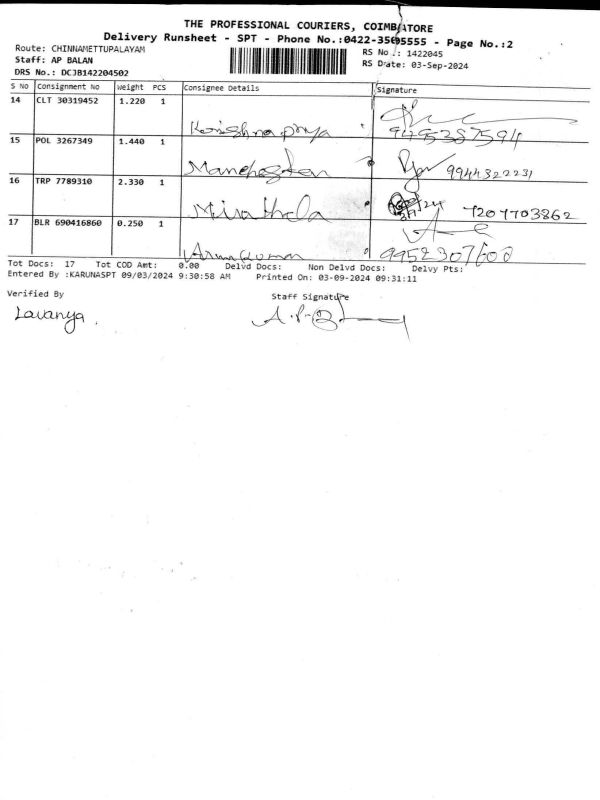 THE PROFESSIONAL COURIERS, COIMBATORE
Delivery Runsheet - SPT - Phone No.:0422-3505555 - Page No.:2
Route: CHINNAMETTUPALAYAM
RS No.: 1422045
Staff: AP BALAN
RS Date: 03-Sep-2024
DRS No.: DCJB142204502
S No Consignment No Weight PCS Consignee Details Signature
14 CLT 30319452 1.220 1 Krishnapriya 9495387594
15 POL 3267349 1.440 1 Manchester 9944322231
16 TRP 7789310 2.330 1 7207703862
17 BLR 690416860 0.250 1 Arunkumar 9952307600
Tot Docs: 17 Tot COD Amt: 0.00 Delvd Docs: Non Delvd Docs: Delvy Pts:
Entered By :KARUNASPT 09/03/2024 9:30:58 AM Printed On: 03-09-2024 09:31:11
Verified By Staff Signature
Lavanya.